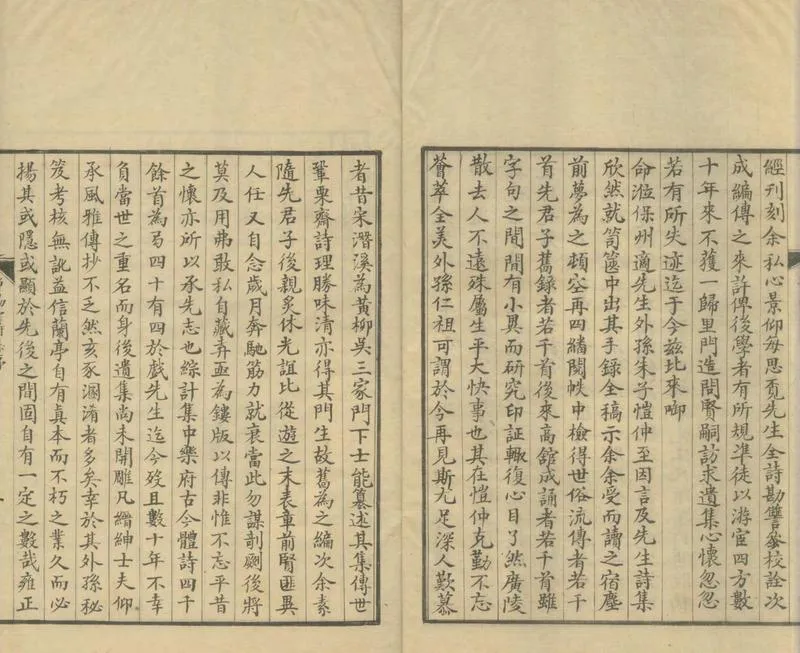 經刊刻余私心景仰每思覓先生全詩勘讐叅校詮次
成編傳之來許俾後學者有所規準徒以游宦四方數
十年來不獲一歸里門造問賢嗣訪求遺集心懷忽忽
若有所失迹迄于今茲比來啣
命涖保州適先生外孫朱子愷仲至因言及先生詩集
欣然就笥篋中出其手錄全稿示余余受而讀之宿塵
前夢為之頓空再四繙閱帙中檢得世俗流傳者若干
首先君子舊錄者若干首後來高館成誦者若干首雖
字句之間間有小異而研究印証輙復心目了然廣陵
散去人不遠殊屬生平大快事也其在愷仲克勤不忘
薈萃全美外孫仁祖可謂於今再見斯尤足深人歎慕
者昔宋潛溪為黃柳吳三家門下士能纂述其集傳世
鞏栗齋詩理勝味清亦得其門生故舊為之編次余素
隨先君子後親炙休光誼比從遊之末表章前賢匪異
人任又自念歲月奔馳筋力就衰當此勿謀剞劂後將
莫及用弗敢私自藏弆亟為鏤版以傳非惟不忘平昔
之懷亦所以承先志也綜計集中樂府古今體詩四千
餘首為卷四十有四於戲先生迄今歿且數十年不幸
負當世之重名而身後遺集尚未開雕凡縉紳士夫仰
承風雅傳抄不乏然亥豕溷淆者多矣幸於其外孫秘
笈考核無訛益信蘭亭自有真本而不朽之業久而必
揚其或隱或顯於先後之間固自有一定之數哉雍正